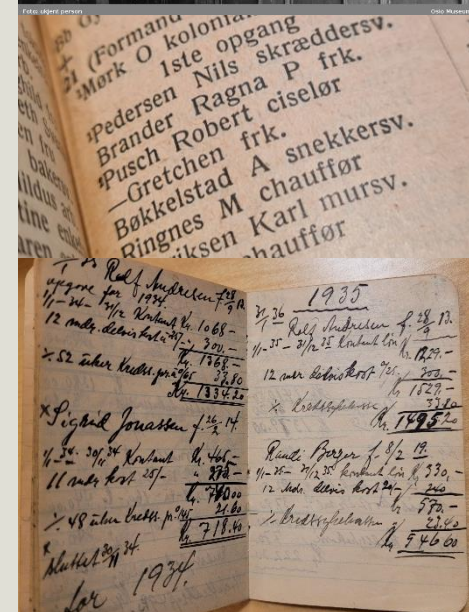 Foto: ukjent person
Oslo Museum
(Formand
Mørk O kolonial
1ste opgang
Pedersen Nils skræddersv.
Brander Ragna P frk.
Pusch Robert ciselør
—Gretchen frk.
Bøkkelstad A snekkersv.
Ringnes M chauffør
Karl mursv.
chauffør
Rolf Andresen f. 28/9 13.
opgave for 1934.
1/1-34 - 31/12 Kontant Kr. 1068.-
12 mdr. delvis kost à 25/- 300.-
Kr. 1368.-
÷ 52 uker Kredss. pr. à 65 33.80
Kr. 1334.20
× Sigrid Jonassen f. 26/2 14.
1/1-34 - 30/11 34 Kontant Kr. 465.-
11 mdr kost 25/-
÷ 48 uker Kredss. pr. à 45 21.60
Kr. 718.40
×
sluttet 30/11 34.
for 1934.
1935
31/1 36
Rolf Andresen f. 28/9 13.
1/1-35 - 31/12 35 Kontant løn Kr. 1229.-
12 mdr delvis kost à 25.- 300.-
Kr. 1529.-
÷ Kredssykekassen 33.80
Kr. 1495.20
Randi Berger f. 8/2 19.
1/1-35 - 31/12 35 kontant løn Kr. 330.-
12 mdr. delvis kost 240
580.-
÷ Kredssykekassen 23.40
Kr. 546.60